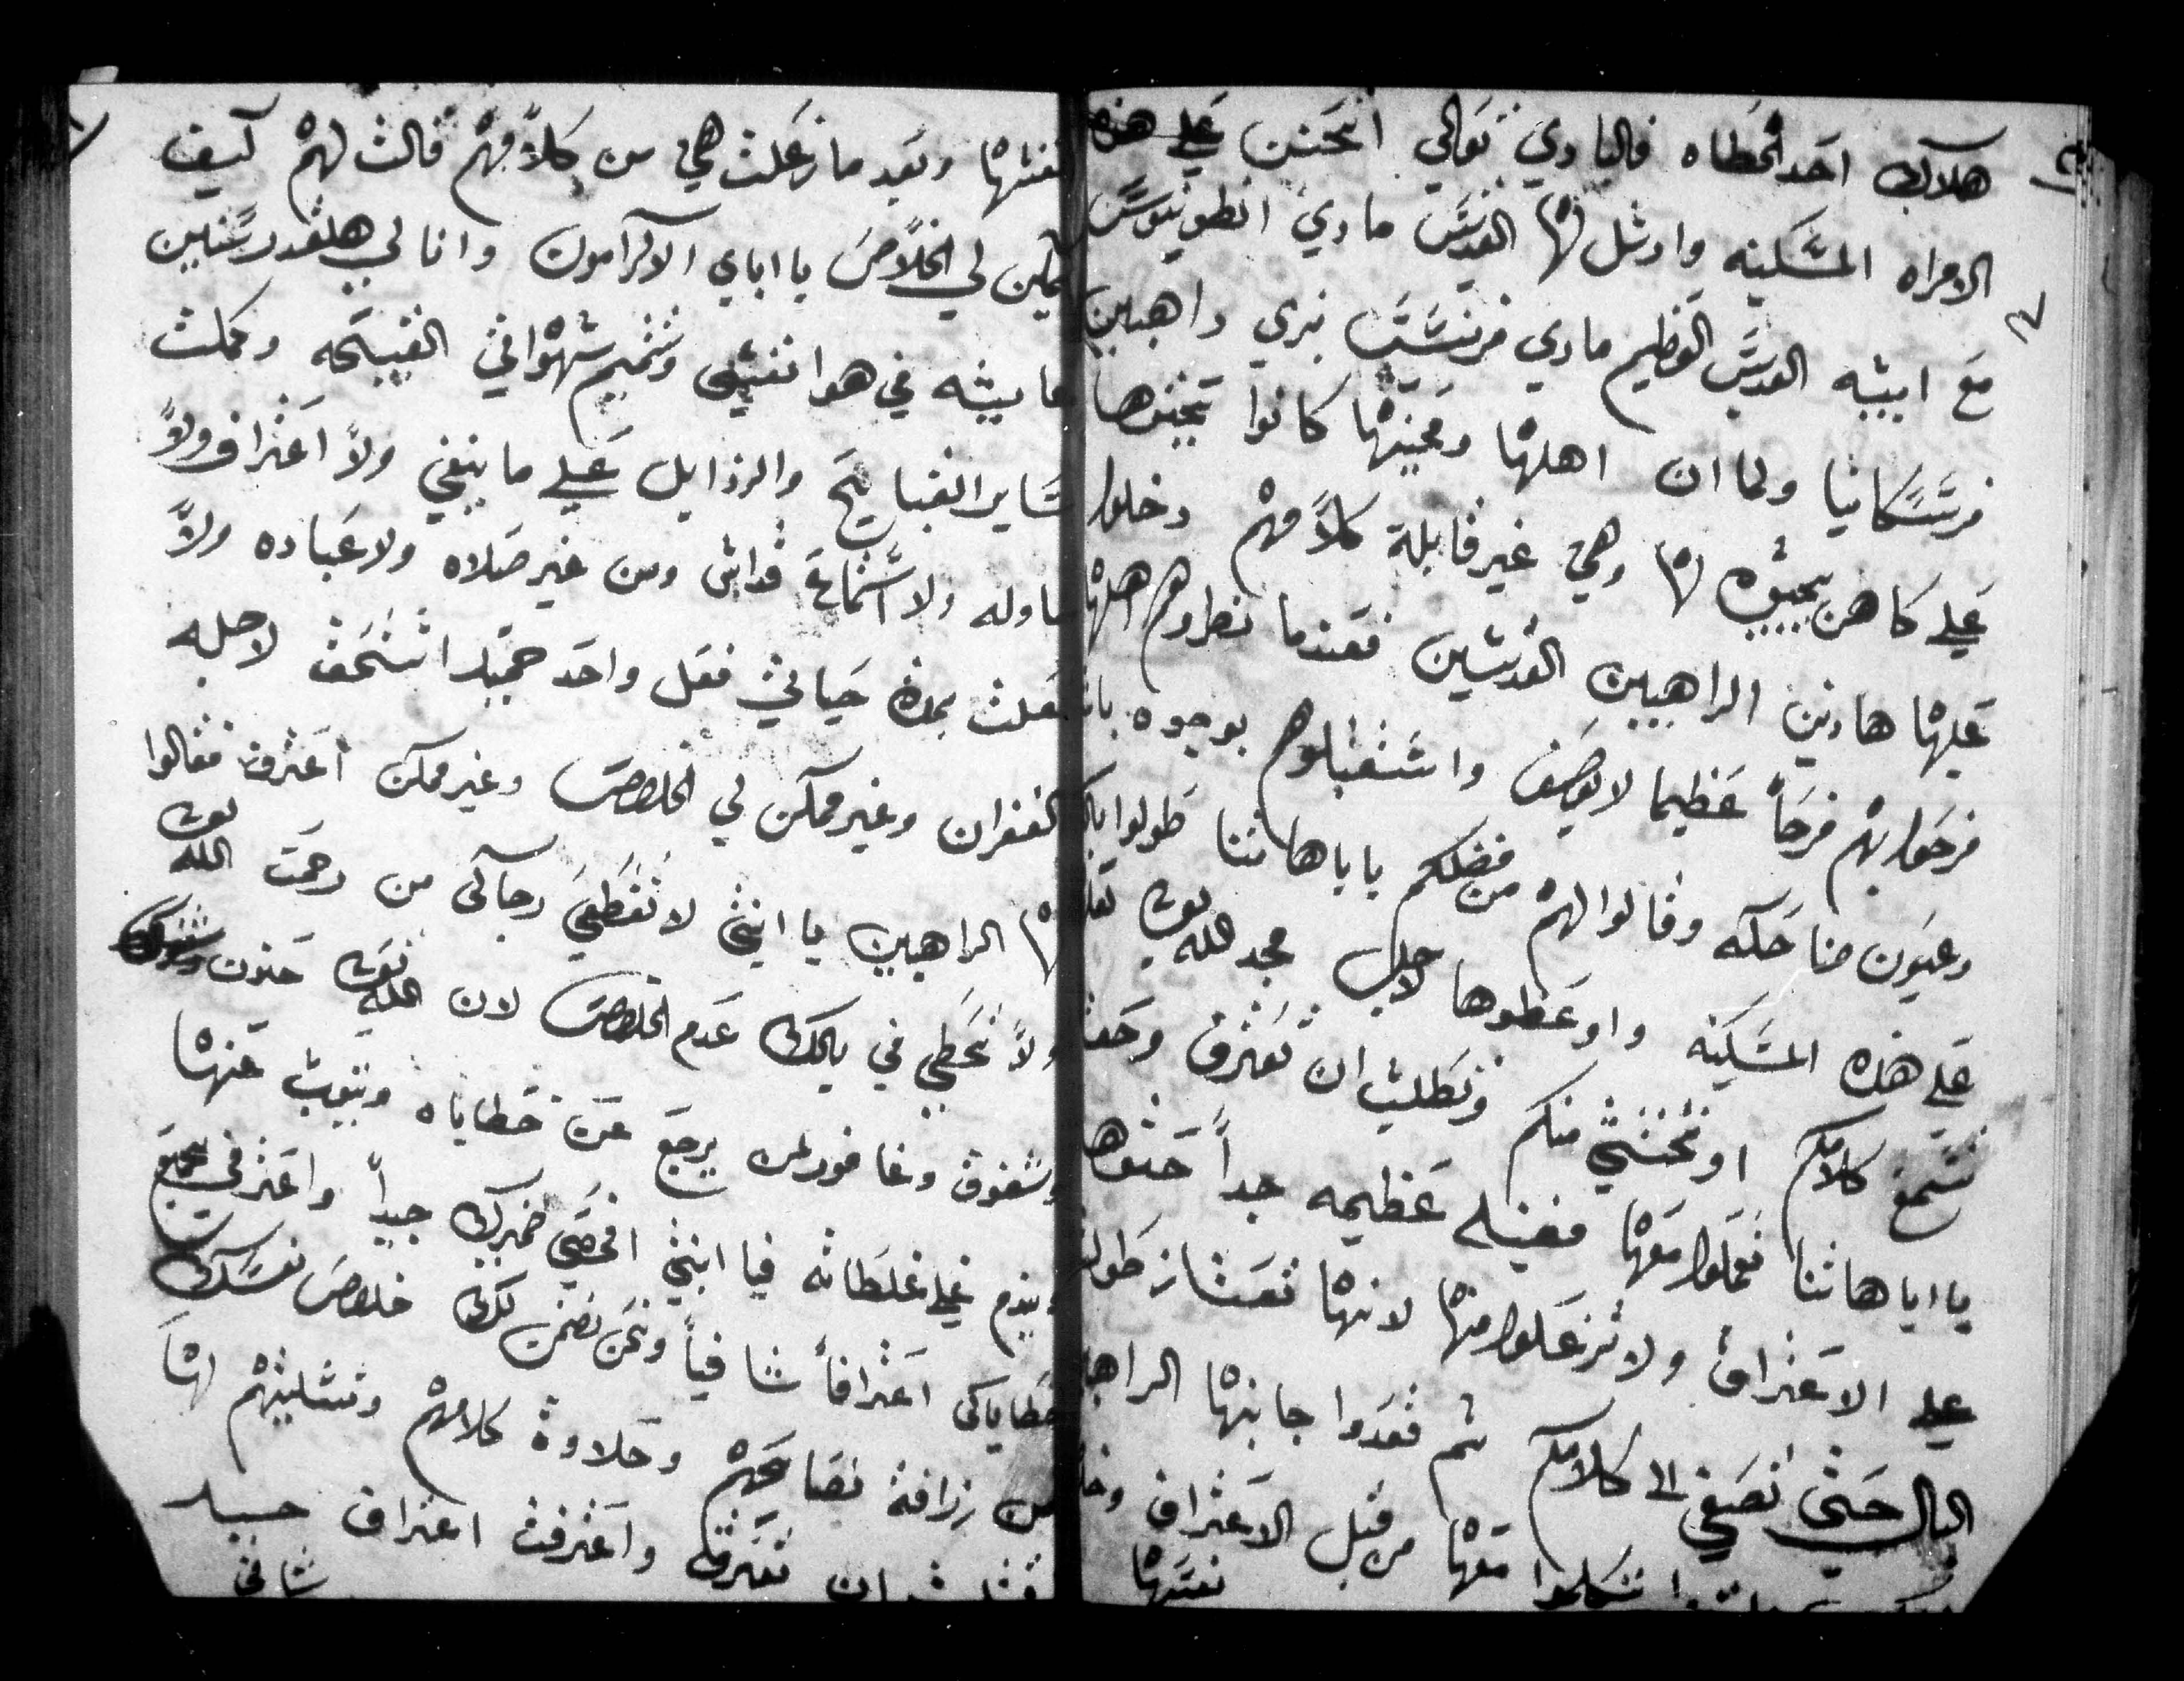 هلاك احد الخطاه فالباري تعالي اتحنن علي هذه
الامراه المسكينه وارسل لها القديس ماري انطونيوس
مع ابيه القديس العظيم ماري فرنسيس بزي راهبين
فرنسسكانيا ولما ان اهلها ومحبينها كانوا يجيبوها
علي كاهن يجيبوه لها وهي غير قابلة كلامهم دخلوا
عليها هادين الراهبين القديسين فعندما نظروهم اهلها
فرحوا بهم فرحاً عظيما لا يوصف واستقبلوهم بوجوه
وعيون ضاحكه وقالوا لهم من فضلكم يا اباهاتنا طولوا
علي هذه المسكينه واوعظوها لاجل مجد الله
تسمع كلامكم او تختشي منكم وتطلب ان تعترف
يا اباهاتنا تعملوا معها فضيله عظيمه جداً حتوها
علي الاعتراف ولا تزعلوا منها لانها تعتاز طولة
البال حتي تصغي الي كلامكم ثم قعدوا جانبها
تتكلموا معها من قبل الاعتراف
نعتها
وبعد ما زعلت هي من كلامهم قالت لهم كيف
يمكن لي الخلاص يا اباي الاكرامون وانا لي هلقدر سنين
عايشه في هوا نفسي وتتميم شهواتي القبيحه وعملت
ساير القبايح والرذايل علي ما ينبغي ولا اعتراف ولا
مناوله ولا استماع قداس ومن غير صلاه ولا عباده ولا
عملت بمدة حياتي فعل واحد جيد استحق لاجله
الغفران وغير ممكن لي الخلاص وغير ممكن اعترف فقالوا
لها الراهبين يا ابنتي لا تقطعي رجاكي من رحمت الله
ولا تحطي في بالك عدم الخلاص لان الله حنون
وشفوق وغافور لمن يرجع عن خطاياه ويتوب عنها
ويندم علي غلطاته فيا ابنتي افحصي ضميرك جيداً واعترفي بجميع
خطاياكي اعترافاً شافياً ونحن نضمن لك خلاص نفسك
من زرافة نصايحهم وحلاوة كلامهم وتسليتهم لها
ان تعترف واعترفت اعتراف جيد
شافي